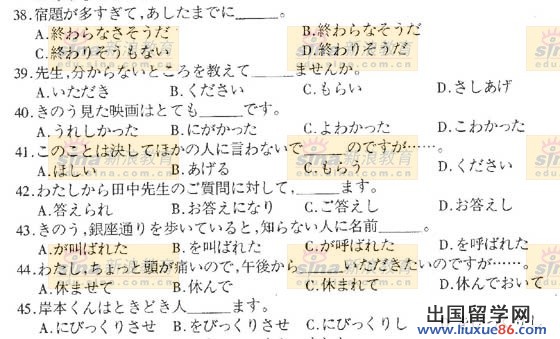 38.宿題が多すぎて,あしたまでに______。
A.終わらなさそうだ B.終わらなそうだ
C.終わりそうもない D.終わりそうだ
39.先生,分からないところを教えて______ませんか。
A.いただき B.ください C.もらい D.さしあげ
40.きのう見た映画はとても______です。
A.うれしかった B.にがかった C.よわかった D.こわかった
41.このことは決してほかの人に言わないで______のですが……。
A.ほしい B.あげる C.もらう D.ください
42.わたしから田中先生のご質問に対して,______ます。
A.答えられ B.お答えになり C.ご答えし D.お答えし
43.きのう,銀座通りを歩いていると,知らない人に名前______。
A.が叫ばれた B.を叫ばれた C.が呼ばれた D.を呼ばれた
44.わたし,ちょっと頭が痛いので,午後から______いただきたいのですが……。
A.休ませて B.休んで C.休まれて D.休んでおいて
45.岸本くんはときどき人______ます。
A.にびっくりさせ B.をびっくりさせ C.にびっくりし
sina 新浪教育
edu.sina
出国留学网
www.liuxue86.com